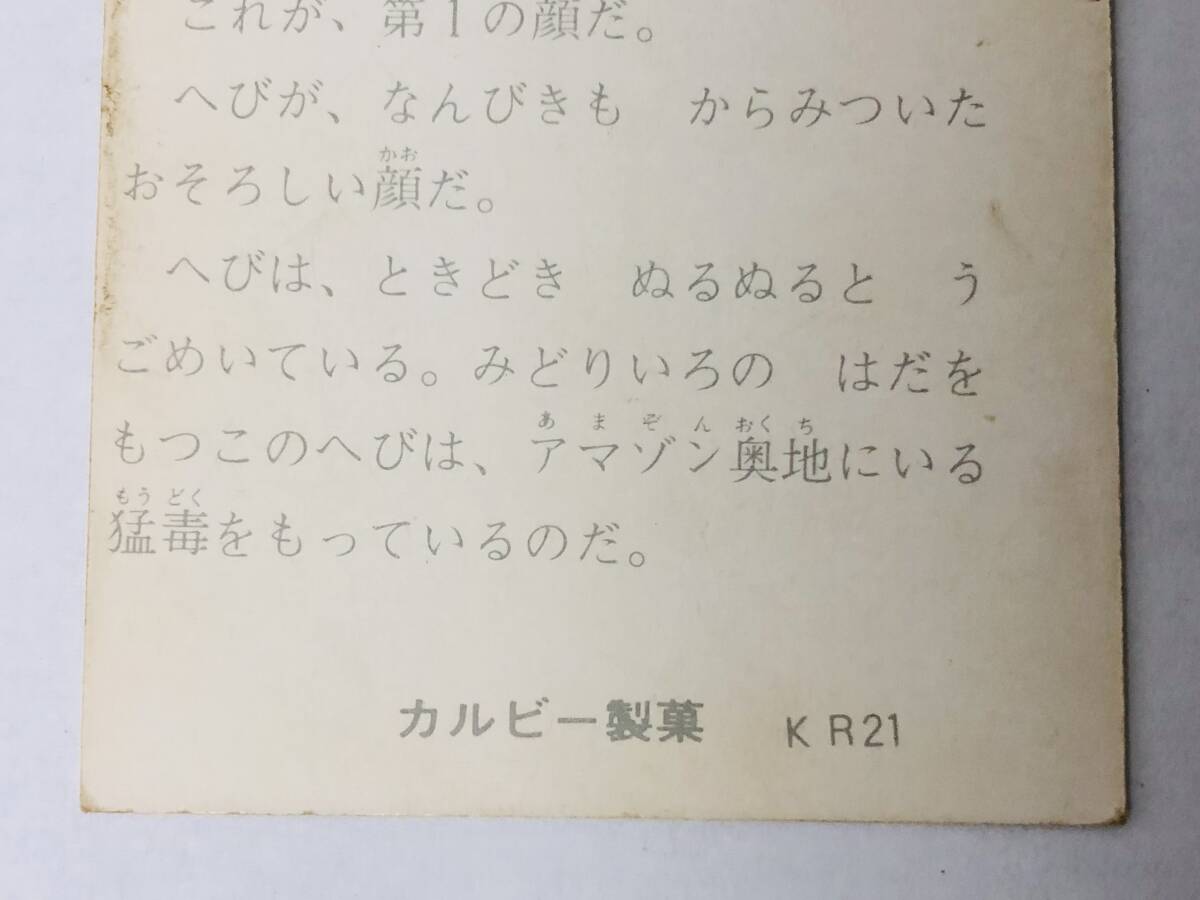 これが、第1の顔だ。
へびが、なんびきも　からみついた
おそろしい顔だ。
へびは、ときどき　ぬるぬると　う
ごめいている。みどりいろの　はだを
もつこのへびは、アマゾン奥地にいる
猛毒をもっているのだ。
カルビー製菓　KR21